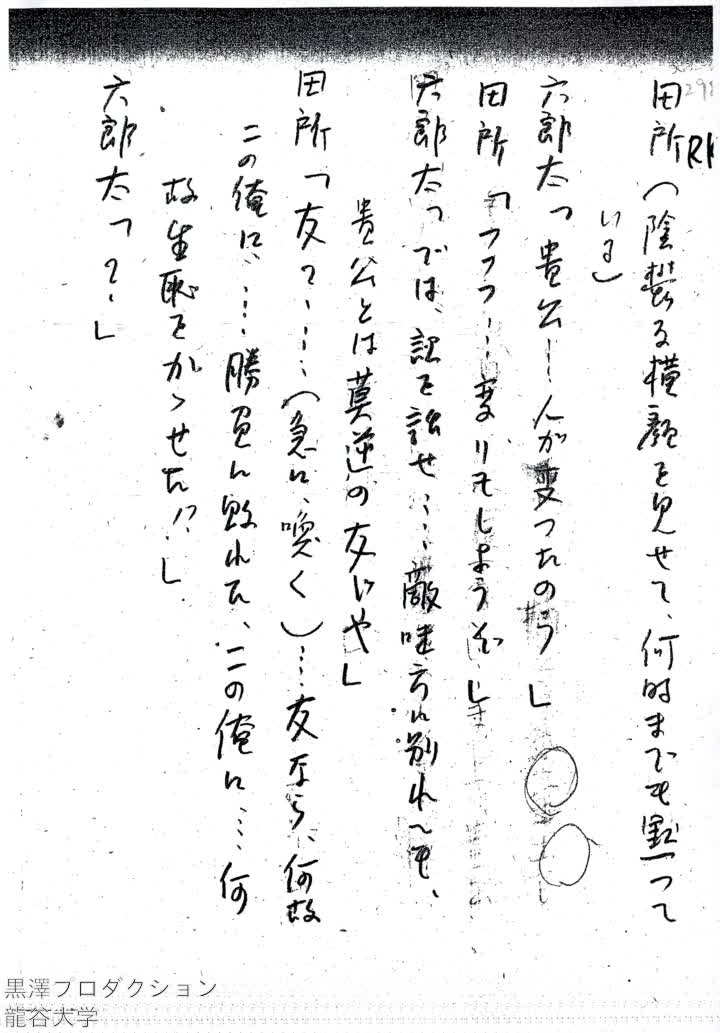 田所（陰鬱な横顔を見せて、何時までも黙って
いる）
六郎太「貴公……人が変ったのう」
田所「フフフ……変りもしようぞ……」
六郎太「では、話を詰せ……敵味方に別れても、
貴公とは莫逆の友じゃ」
田所「友？……（急に、喚く）……友なら、何故
この俺に、……勝負に敗れた、この俺に……何
故生恥をかゝせた!?」
六郎太「？・」
黒澤プロダクション
龍谷大学